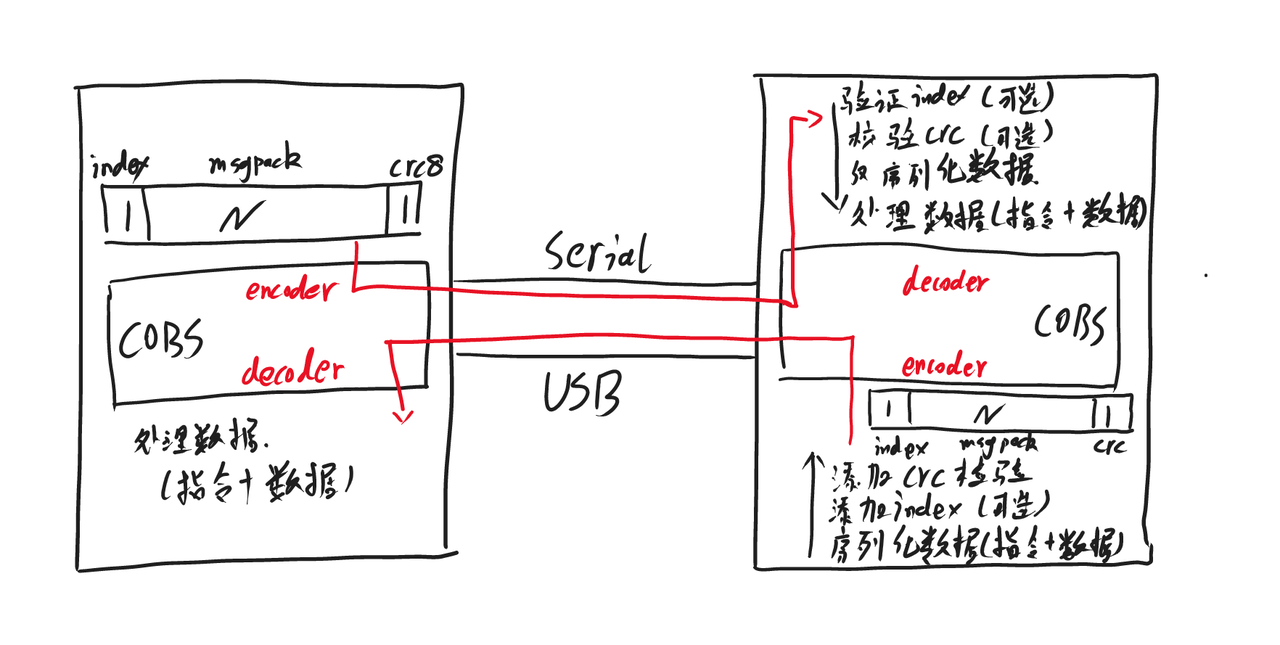 index msgpack crc8
1 N 1
encoder
COBS
decoder
处理数据.
(指令+数据)
Serial
USB
验证index(可选)
校验crc(可选)
反序列化数据
处理数据(指令+数据)
decoder
COBS
encoder
1 N 1
index msgpack crc
添加crc校验
添加index(可选)
序列化数据(指令+数据)